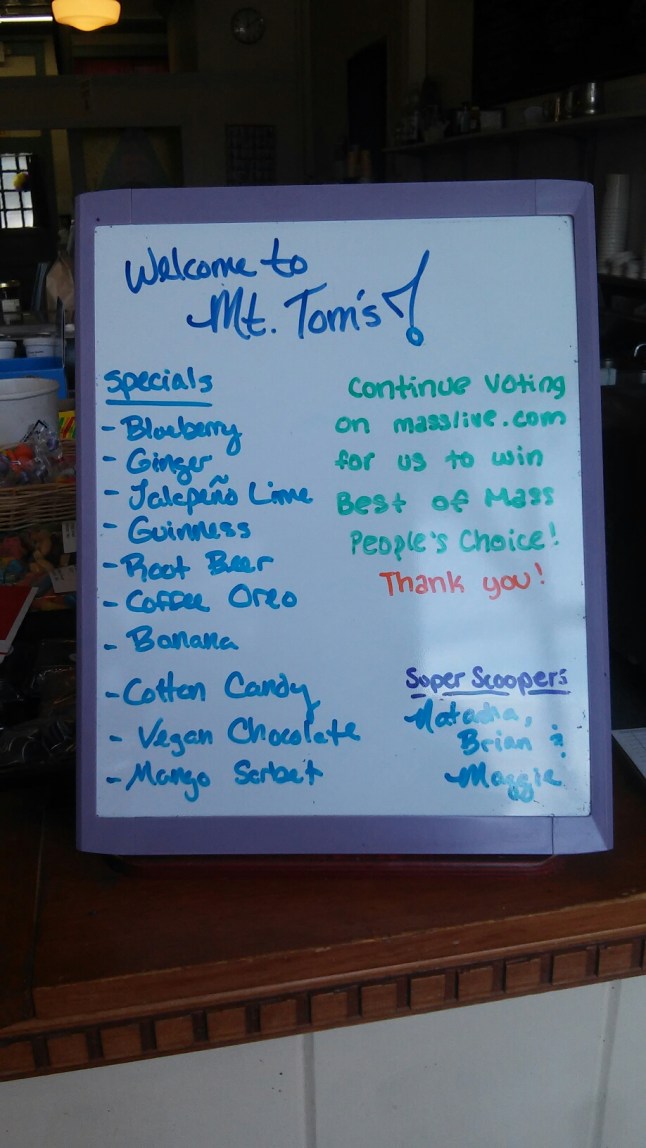 Welcome to
Mt. Tom's!
Specials
- Blueberry
- Ginger
- Jalapeño Lime
- Guinness
- Root Beer
- Coffee Oreo
- Banana
- Cotton Candy
- Vegan Chocolate
- Mango Sorbet
Continue Voting
on masslive.com
for us to win
Best of Mass
People's Choice!
Thank you!
Super Scoopers
Natasha,
Brian &
Maggie